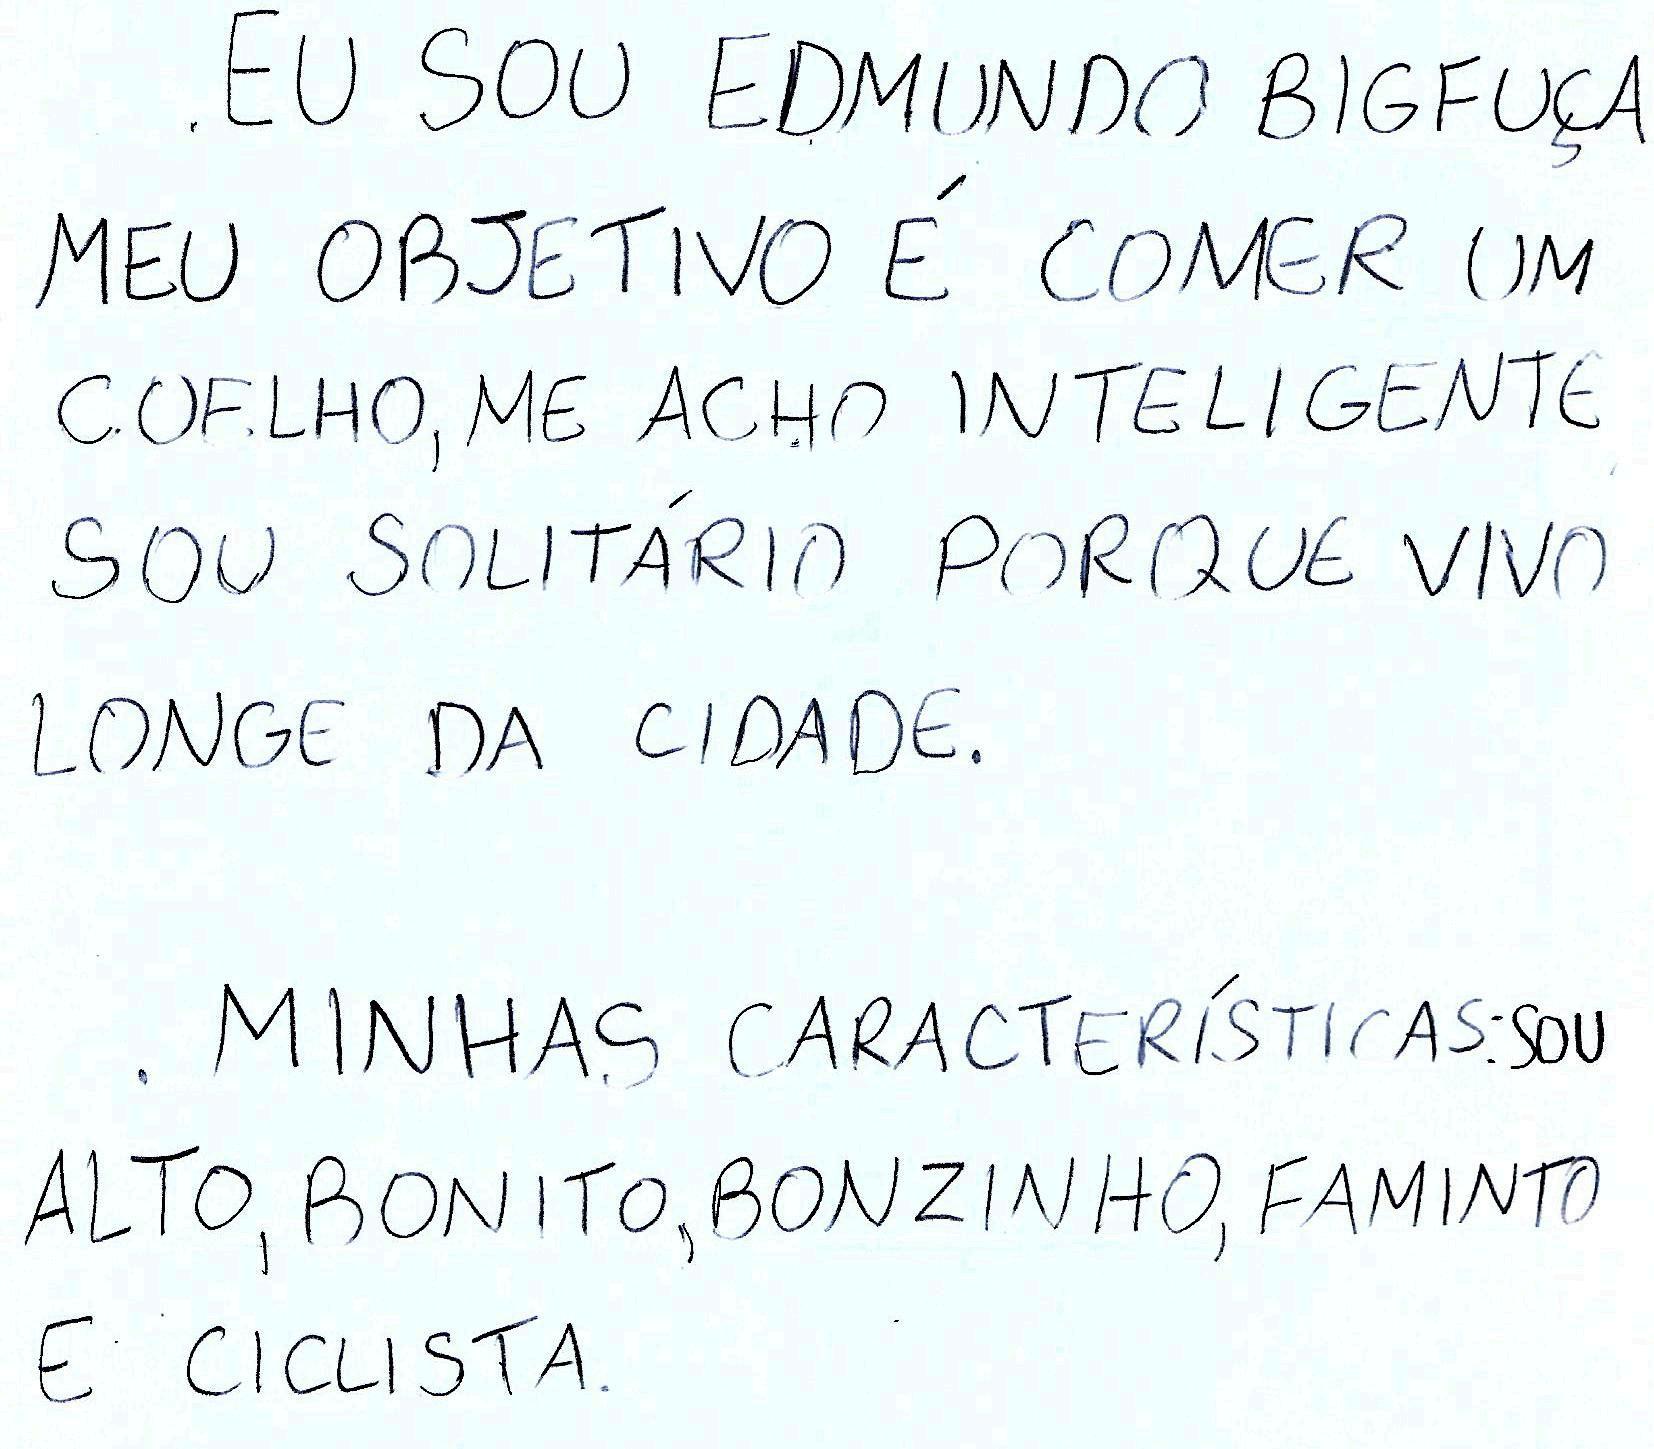 .EU SOU EDMUNDO BIGFUÇA
MEU OBJETIVO É COMER UM
COELHO, ME ACHO INTELIGENTE
SOU SOLITÁRIO PORQUE VIVO
LONGE DA CIDADE.
. MINHAS CARACTERÍSTICAS: SOU
ALTO, BONITO, BONZINHO, FAMINTO
E CICLISTA.